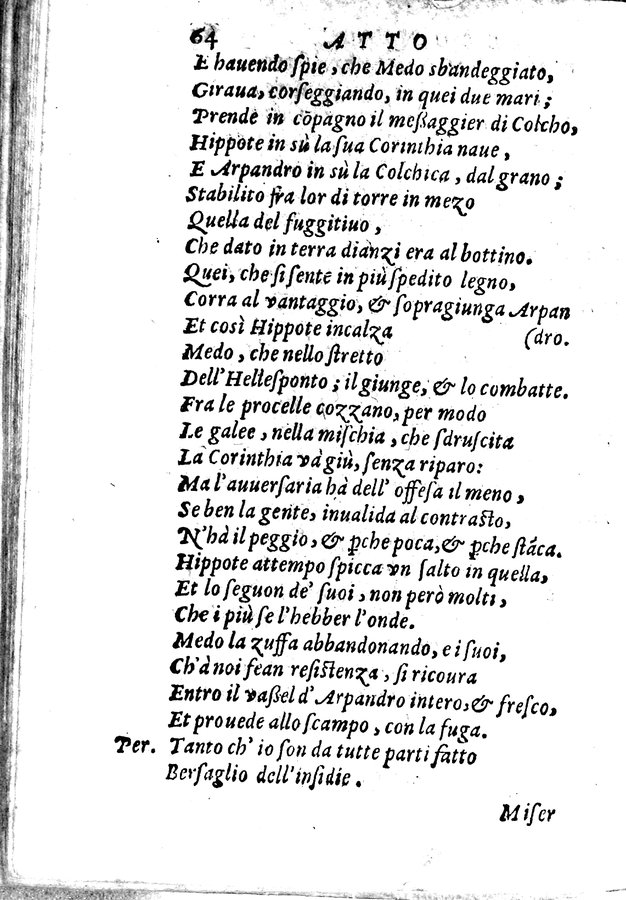 64 ATTO
E hauendo ſpie, che Medo sbandeggiato,
Giraua, corſeggiando, in quei due mari;
Prende in cōpagno il meſſaggier di Colcho,
Hippote in sù la ſua Corinthia naue,
E Arpandro in sù la Colchica, dal grano;
Stabilito fra lor di torre in mezo
Quella del fuggitiuo,
Che dato in terra dianzi era al bottino.
Quei, che ſi ſente in più ſpedito legno,
Corra al vantaggio, & ſopragiunga Arpan
Et così Hippote incalza (dro.
Medo, che nello ſtretto
Dell'Helleſponto; il giunge, & lo combatte.
Fra le procelle cozzano, per modo
Le galee, nella miſchia, che ſdruſcita
La Corinthia và giù, ſenza riparo:
Ma l'auuerſaria hà dell'offeſa il meno,
Se ben la gente, inualida al contraſto,
N'hà il peggio, & ꝑche poca, & ꝑche ſtāca.
Hippote attempo ſpicca vn ſalto in quella,
Et lo ſeguon de' ſuoi, non però molti,
Che i più ſe l'hebber l'onde.
Medo la zuffa abbandonando, e i ſuoi,
Ch'à noi fean reſiſtenza, ſi ricoura
Entro il vaſſel d'Arpandro intero, & freſco,
Et prouede allo ſcampo, con la fuga.
Per. Tanto ch' io ſon da tutte parti fatto
Berſaglio dell'inſidie.
Miſer